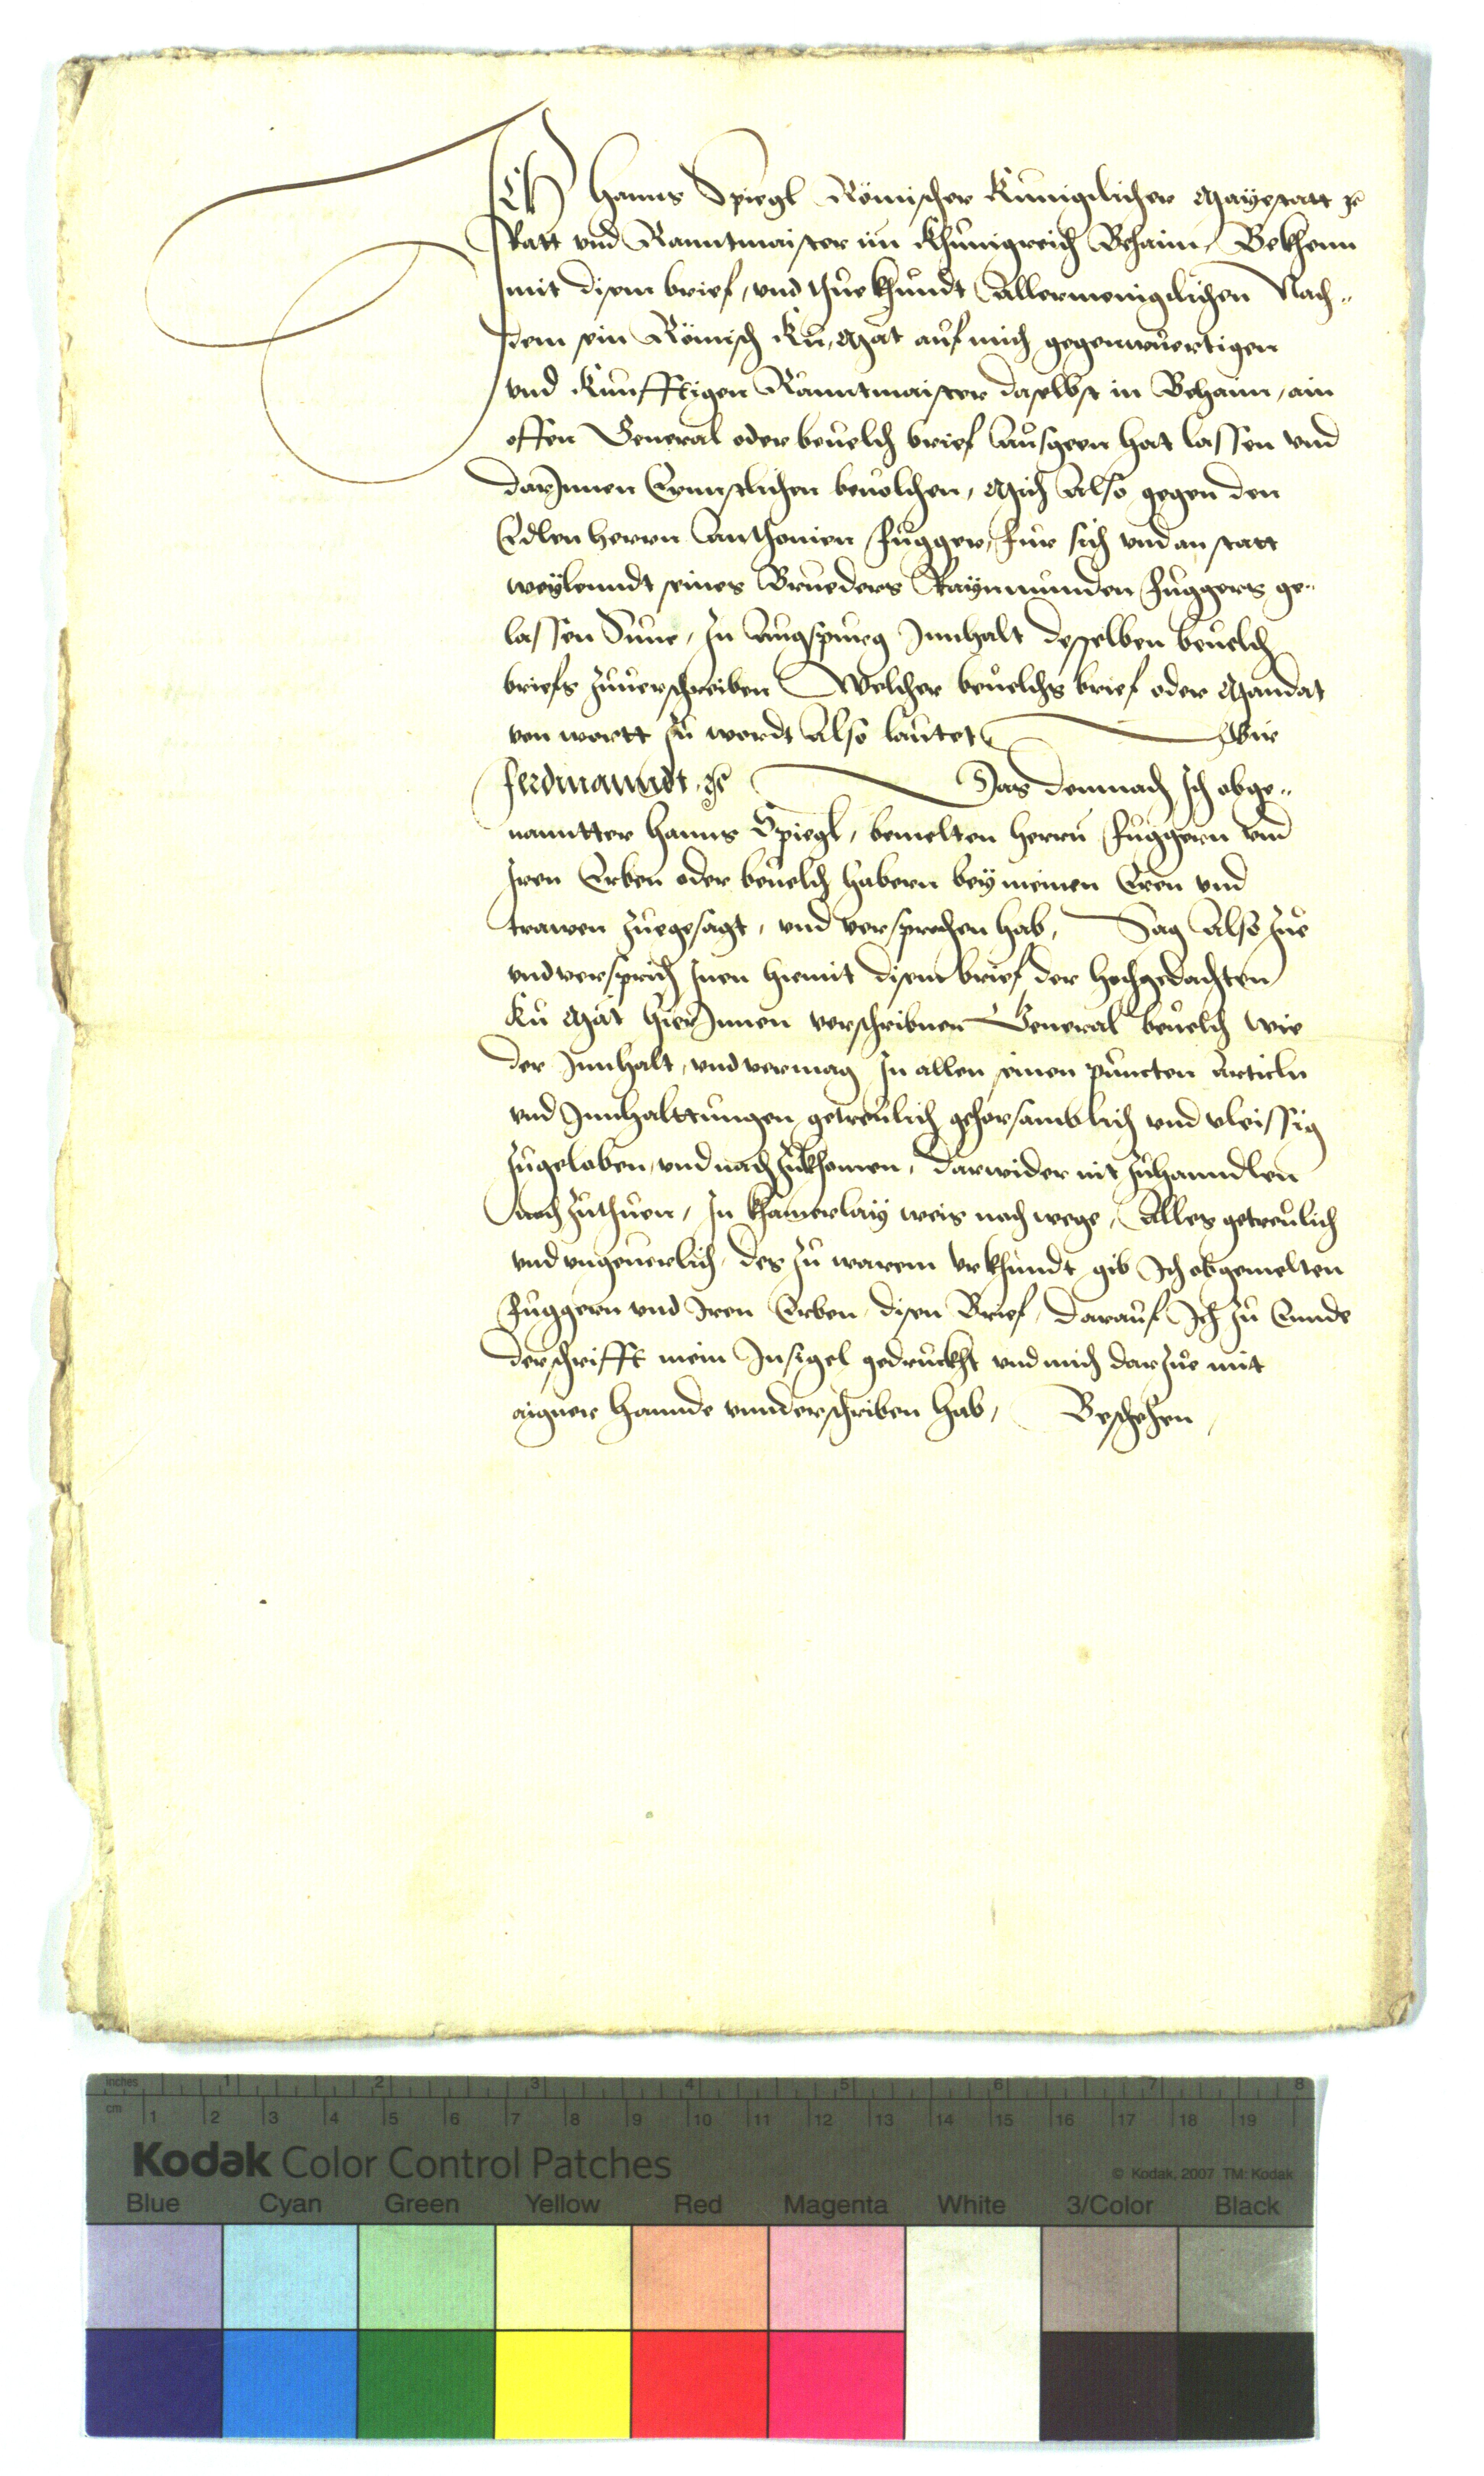 Ich Hanns Spiegl Römischer Kunigclicher Mayestatt ꝛc
Ratt vnd Ranntmaister im Khunigreich Behaim, Bekhenn
mit disem brief, vnd thue khundt Allermenigclichen Nach-
dem sein Römisch Ku. Mat auf mich gegenwuertigen
vnd Kunfftigen Ranntmaister daselbst in Behaim, ain
offen General oder beuelch brief Ausgeen hat lassen vnd
darInnen Ernnstlichen beuolchen, Mich Also gegen den
Edlen herrn Anthonien Fugger, für sich vnd an statt
weylenndt seines Brueders Raymunden Fuggers ge-
lassen Sune, In Augspurg Innhalt desselben beuelch
briefs zuuerschreiben Welcher beuelchs brief oder Mandat
von wortt zu wordt Also lautet Wir
Ferdinanndt ꝛc Das demnach Ich obge-
nanntter Hanns Spiegl, bemelten herrn Fuggern vnd
Iren Erben oder beuelch habern bey meinen Eren vnd
trawen zuegesagt, vnd versprochen hab, Sag Also zue
vnd versprich Inen hiemit disem brief der hochgedachten
Ku Mat hierInnen verschribnen General beuelch wie
der Innhalt, vnd vermag In allen seinen puncten Articln
vnd Innhalttungen getreulich gehorsamblich vnd vleissig
zugeloben, vnd nach zukhomen, darwider nit zuhanndlen
noch zuthuen, In khainerlay weis noch wege, Alles getreulich
vnd vngeuerlich, des zu warem vrkhundt gib Ich obgemelten
Fuggern vnd Iren Erben disen Brief, darauf Ich zu Ennde
der schrifft mein Insigel gedruckht vnd mich darzue mit
aigner hannde vnnderschriben hab, Beschehen,
inches 1 2 3 4 5 6 7 8
cm 1 2 3 4 5 6 7 8 9 10 11 12 13 14 15 16 17 18 19
Kodak Color Control Patches © Kodak, 2007 TM: Kodak
Blue Cyan Green Yellow Red Magenta White 3/Color Black